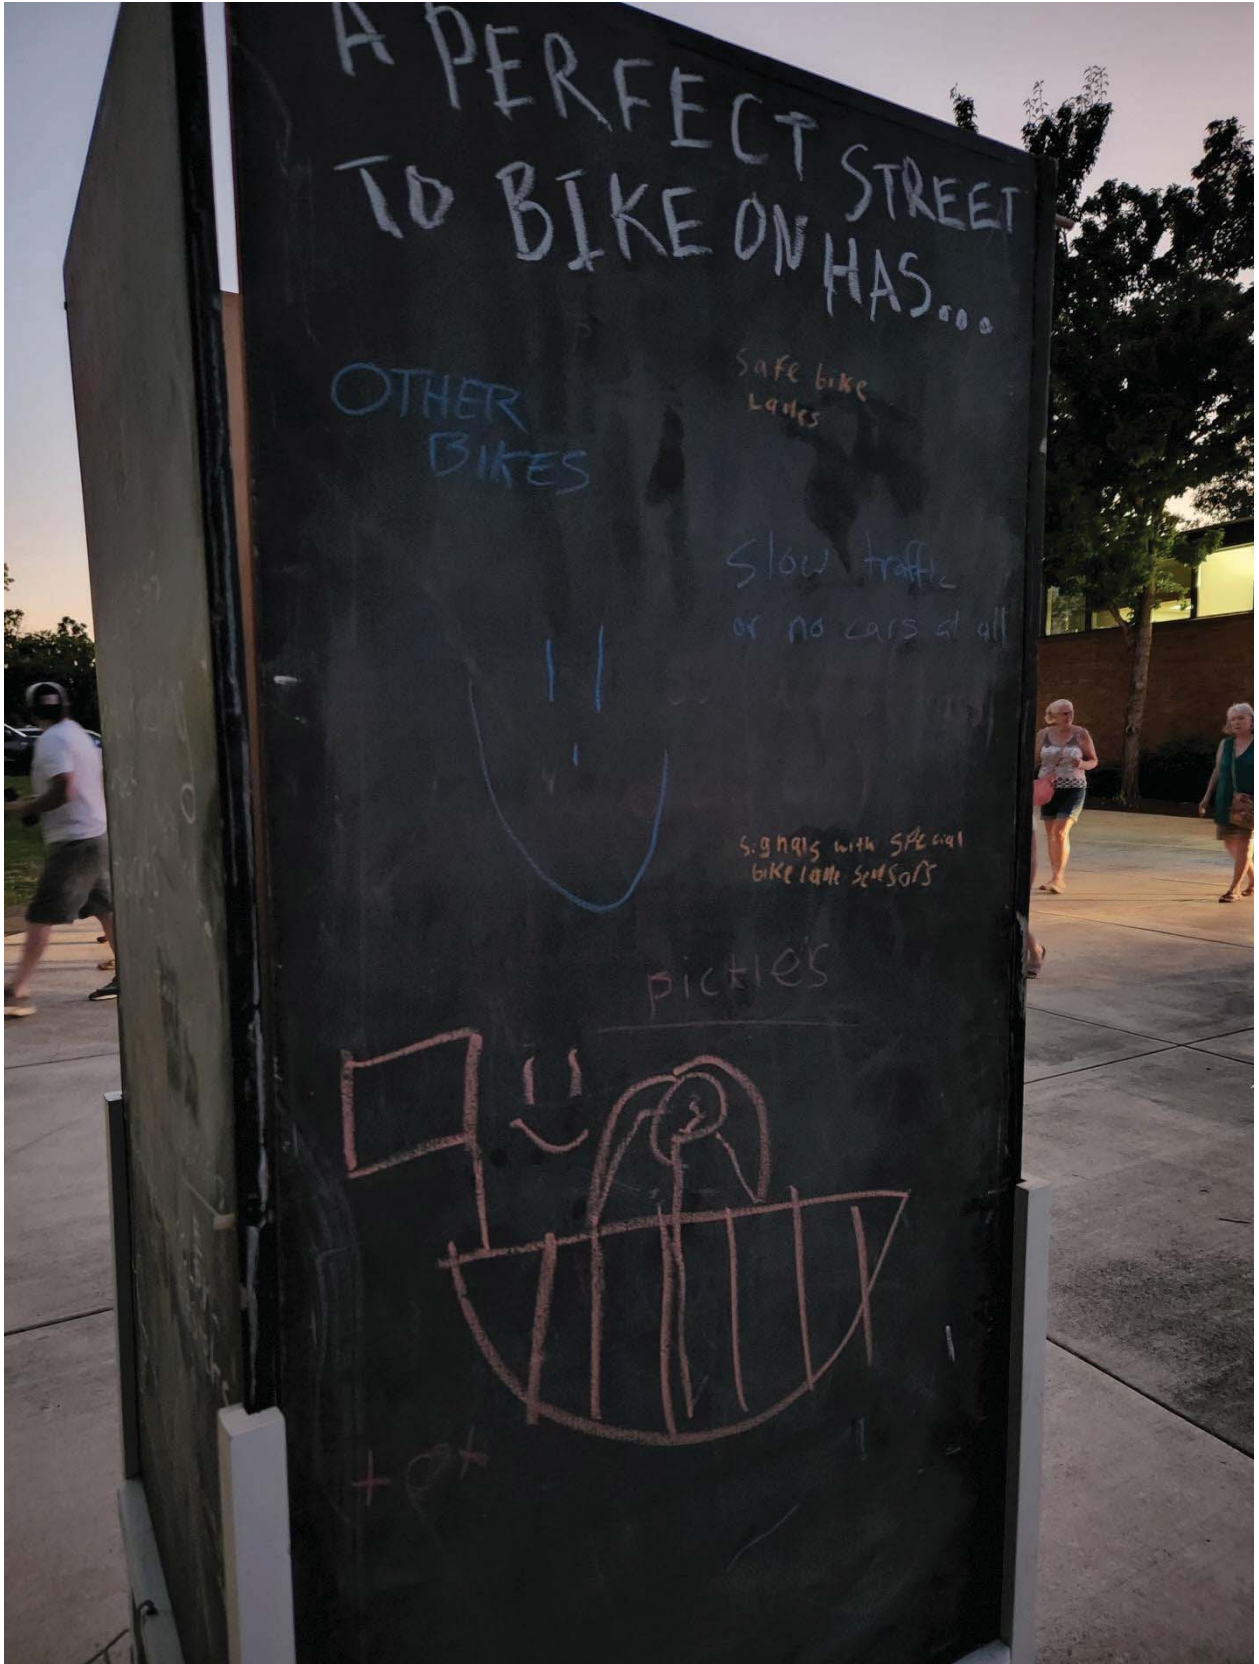 A PERFECT STREET
TO BIKE ON HAS...
OTHER
BIKES
safe bike
Lanes
Slow traffic
or no cars at all
signals with special
bike lane sensors
pickle's